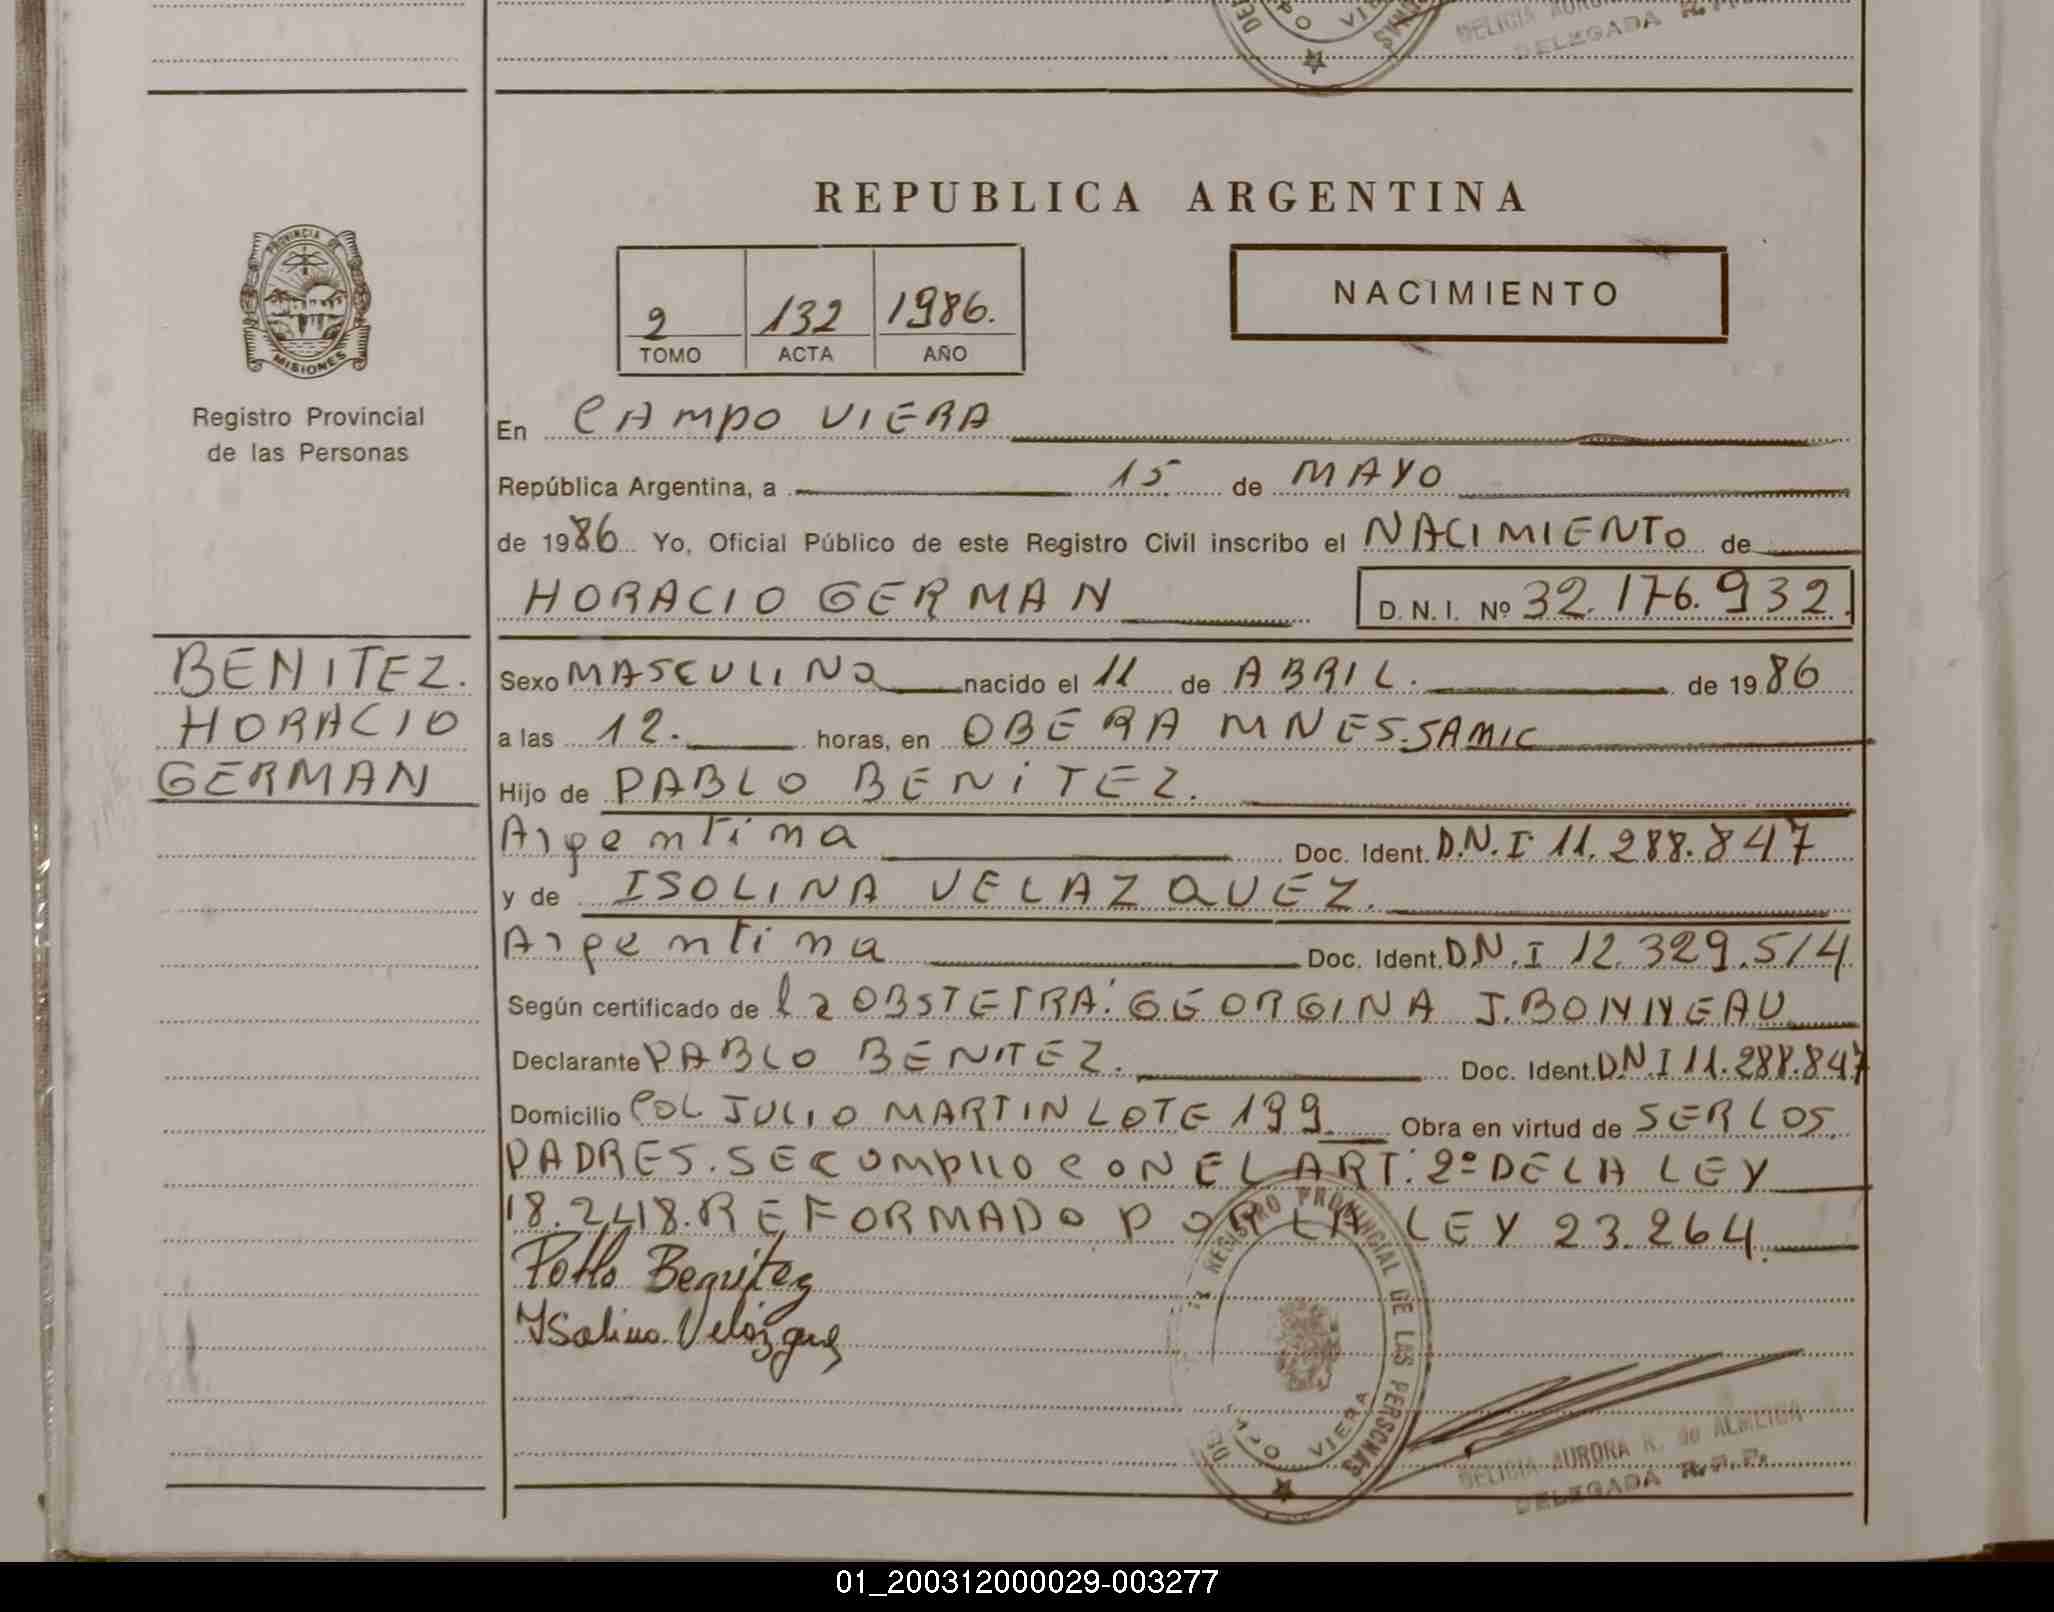 DELICIA AURO
DELEGADA R.P.
REPUBLICA ARGENTINA
PROVINCIA DE
MISIONES
Registro Provincial
de las Personas
2 132 1986.
TOMO ACTA AÑO
NACIMIENTO
En CAMPO VIERA
República Argentina, a 15 de MAYO
de 1986 Yo, Oficial Público de este Registro Civil inscribo el NACIMIENTO de
HORACIO GERMAN D. N. I. Nº 32.176.932.
BENITEZ.
HORACIO
GERMAN
Sexo MASCULINO nacido el 11 de ABRIL. de 1986
a las 12. horas, en OBERA MNES.SAMIC
Hijo de PABLO BENITEZ.
Argentina Doc. Ident. D.N.I 11.288.847
y de ISOLINA VELAZQUEZ.
Argentina Doc. Ident. D.N.I 12.329.514
Según certificado de la OBSTETRA: GEORGINA J. BONNEAU
Declarante PABLO BENITEZ. Doc. Ident. D.N.I 11.288.847
Domicilio COL JULIO MARTIN LOTE 199. Obra en virtud de SER LOS
PADRES. SE COMPLIO CON EL ART. 2º DE LA LEY
18.248. REFORMADO POR LA LEY 23.264.
Pablo Benitez
Isolina Velazquez
REGISTRO PROVINCIAL DE LAS PERSONAS
VIERA
DELICIA AURORA K. de ALMEIDA
DELEGADA R.P.P.
01_200312000029-003277